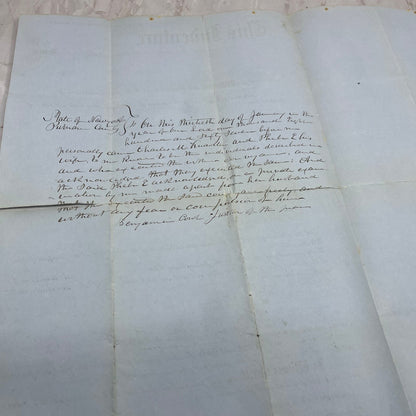 State of New york }
Putnam County } ss On this Ninetenth day of January in the
year of our Lord one thousand Eight
hundred and sixty Seven before me
personally came and Phebe E his
wife to me Known to be the individuals described in
and who executed the within conveyance and
acknowledged that they executed the same And
the said Phebe E acknowledged on a private exam
ination by me made apart from her husband
that she executed the said conveyance freely and
without any fear or compulsion of him
Benjamin Justice of the peace
This Indenture